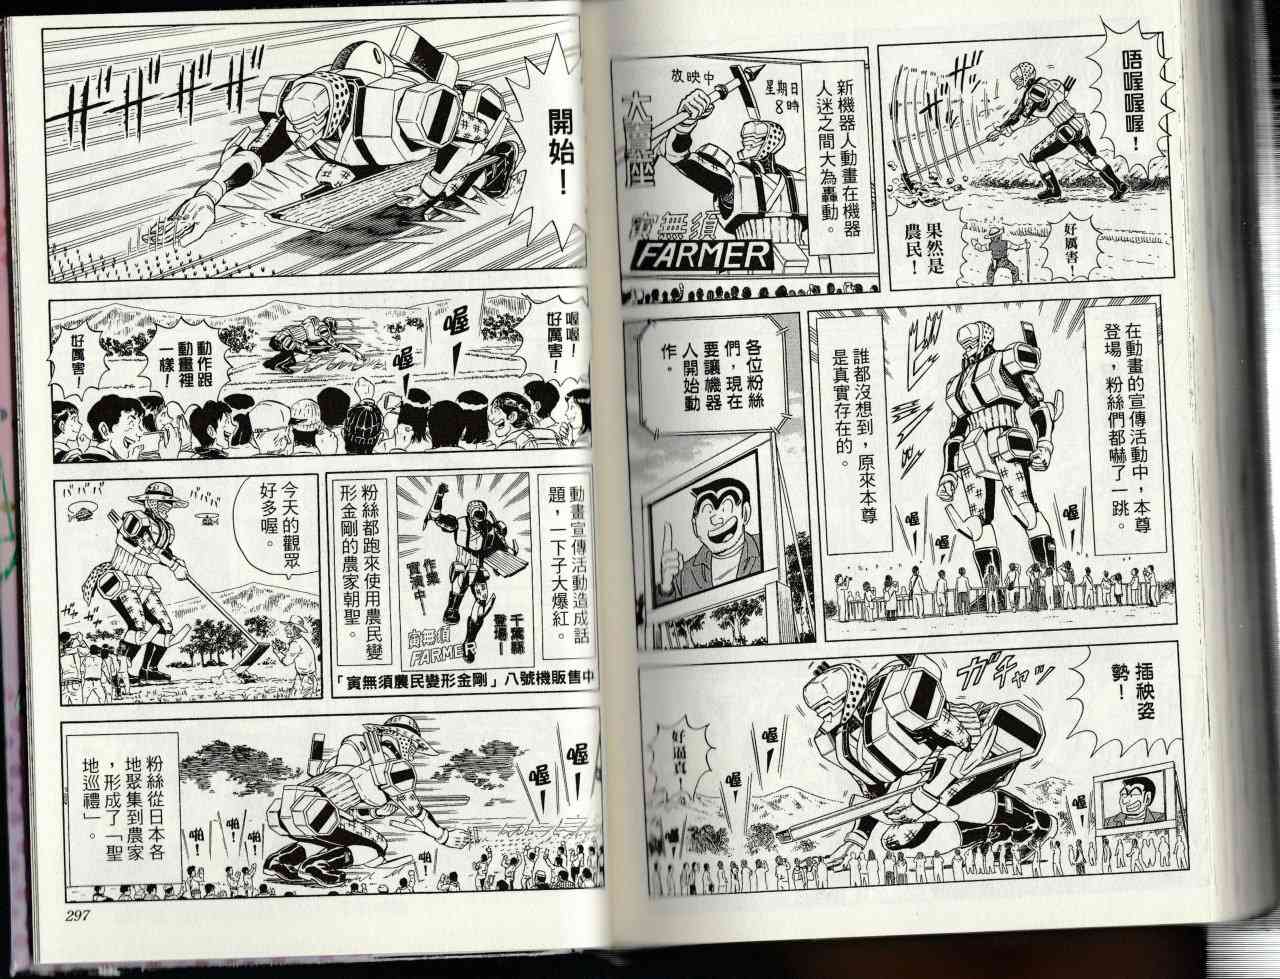 唔喔喔喔！
ザザッ
好厲害！
果然是
農民！
新機器人動畫在機器
人迷之間大為轟動。
放映中
星期日
8時
大銀座
寅無須
FARMER
在動畫的宣傳活動中，本尊
登場，粉絲們都嚇了一跳。
誰都沒想到，原來本尊
是真實存在的。
喔！
喔！
喔！
各位粉絲
們，現在
要讓機器
人開始動
作。
插秧姿
勢！
ガチャッ
喔！
喔！
喔！
好逼真！
開始！
ザザザザ
喔喔！
好厲害！
喔！
喔！
動作跟
動畫裡
一樣！
好厲害！
動畫宣傳活動造成話
題，一下子大爆紅。
千葉縣
登場！
作業
實演中！
寅無須
FARMER
粉絲都跑來使用農民變
形金剛的農家朝聖。
「寅無須農民變形金剛」八號機販售中
今天的觀眾
好多喔。
喔！
喔！
粉絲從日本各
地聚集到農家
，形成了「聖
地巡禮」。
啪！
啪！
啪！
啪！
297